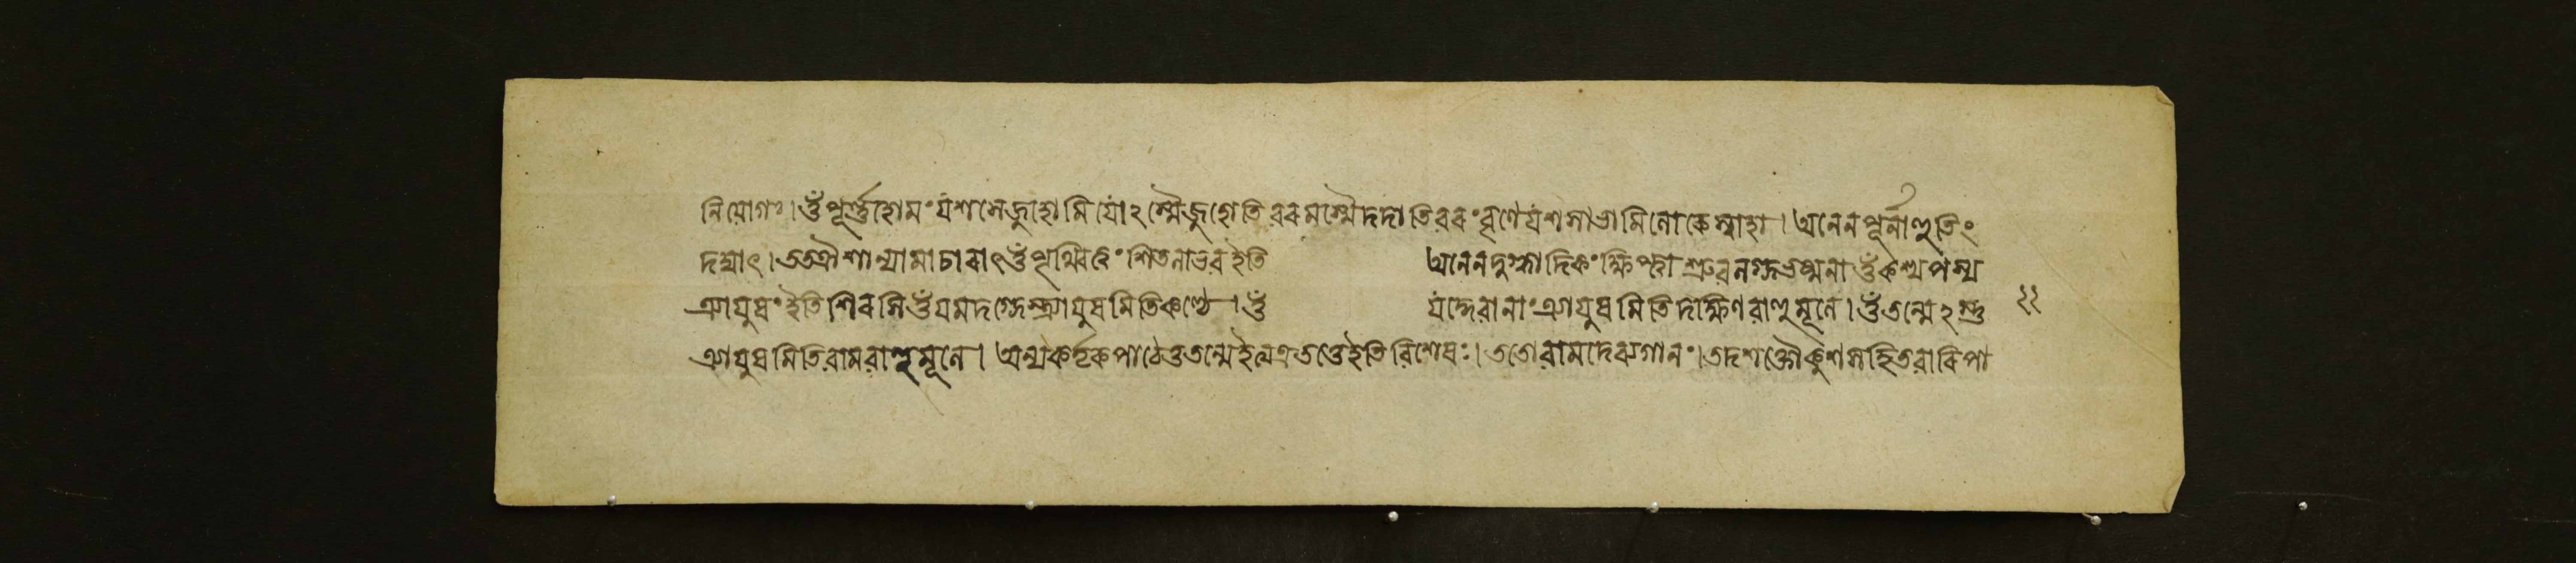 নিয়োগঃ। ওঁ পূর্ণহোমং যশসে জুহোমি যোঽস্মৈ জুহোতি বরমস্মৈ দদাতি বরং বৃণে যশসাভামি লোকে স্বাহা। অনেন পূর্নাহুতিং
দদ্যাৎ। তত ঐশান্যামাচাৰাৎ ওঁ পৃথ্বি ত্বং শিতলাভব ইতি অনেন দুগ্ধাদিকং ক্ষিপ্ত্বা শ্রুবলগ্নভষ্মনা ওঁ কশ্যপস্য
ত্র্যায়ুষং ইতি শিৰসি ওঁ যমদগ্নেস্ত্র্যায়ুষমিতি কণ্ঠে। ওঁ যদ্দেবানাং ত্র্যায়ুষমিতি দক্ষিণবাহুমূলে। ওঁ তন্মেঽস্তু ২২
ত্র্যায়ুষমিতি বামবাহুমূলে। অন্যকর্তৃকপাঠে তু তন্মে ইত্যত্র তত্তে ইতি বিশেষঃ। ততো বামদেব্যগানং। তদশক্তৌ কুশসহিতবাৰিণা